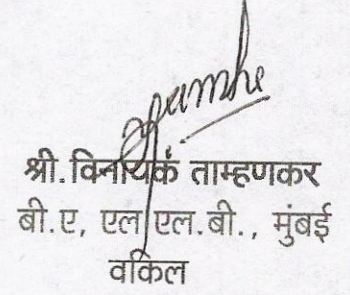 श्री.विनायकं ताम्हणकर
बी.ए, एल एल.बी., मुंबई
वकिल